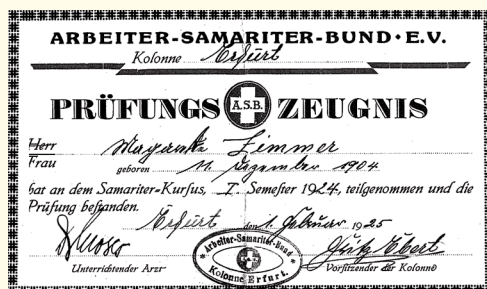 ARBEITER-SAMARITER-BUND · E.V.
Kolonne Erfurt
PRÜFUNGS A.S.B. ZEUGNIS
Herr
Frau Zimmer
geboren 11. Dezember 1904
hat an dem Samariter-Kursus, I. Semester 1924, teilgenommen und die
Prüfung bestanden.
Erfurt den 1. Februar 1925
Dr. Moser
Unterrichtender Arzt
Arbeiter-Samariter-Bund
Kolonne Erfurt.
Ebert
Vorsitzender der Kolonne